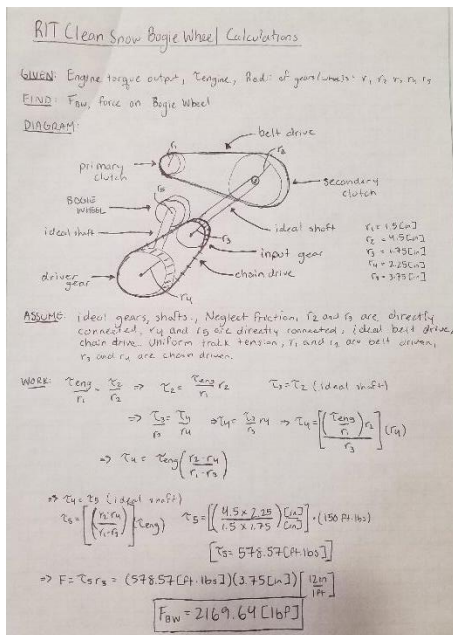 RIT Clean Snow Bogie Wheel Calculations
GIVEN: Engine torque output, τengine, Radii of gears/wheels: r₁ r₂ r₃ r₄ r₅
FIND: FBW, force on Bogie Wheel
DIAGRAM:
belt drive
r₁
r₂
primary clutch
secondary clutch
BOGIE WHEEL
r₅
ideal shaft
ideal shaft
r₃
input gear
chain drive
driver gear
r₄
r₁ = 1.5[in]
r₂ = 4.5[in]
r₃ = 1.75[in]
r₄ = 2.25[in]
r₅ = 3.75[in]
ASSUME: ideal gears, shafts., Neglect friction, r₂ and r₃ are directly
connected, r₄ and r₅ are directly connected, ideal belt drive,
chain drive. Uniform track tension, r₁ and r₂ are belt driven,
r₃ and r₄ are chain driven.
WORK: τeng/r₁ = τ₂/r₂ ⇒ τ₂ = (τeng/r₁) r₂ τ₃ = τ₂ (ideal shaft)
⇒ τ₃/r₃ = τ₄/r₄ ⇒ τ₄ = (τ₃/r₃) r₄ ⇒ τ₄ = [((τeng/r₁) r₂)/r₃] (r₄)
⇒ τ₄ = τeng (r₂·r₄/r₁·r₃)
⇒ τ₄ = τ₅ (ideal shaft)
τ₅ = [(r₂·r₄/r₁·r₃)] (τeng) τ₅ = [(4.5 x 2.25/1.5 x 1.75) [in]/[in]] · (150 ft.lbs)
[τ₅ = 578.57 [ft.lbs]]
⇒ F = τ₅ r₅ = (578.57 [ft.lbs]) (3.75 [in]) [12in/1ft]
FBW = 2169.64 [lbf]